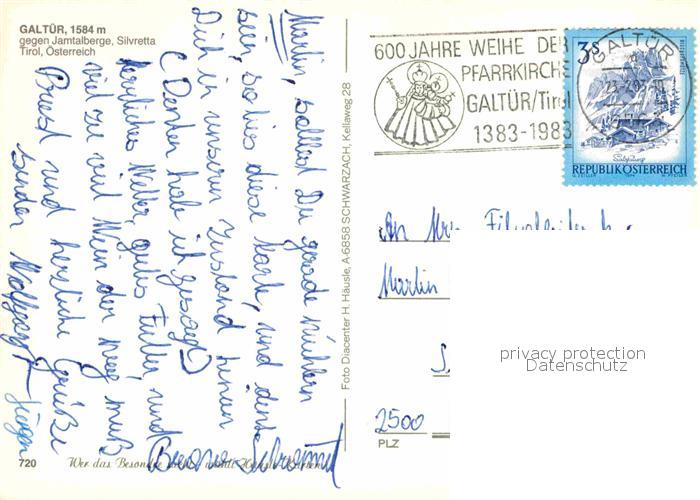 GALTÜR, 1584 m
gegen Jamtalberge, Silvretta
Tirol, Österreich
Martin, solltest Du gerade nüchtern
sein, so lies diese Karte, und denke
Dich in unseren Zustand hinein
(Denken hab ich gesagt)
Herrliches Wetter, gutes Futter und
viel zu viel Wein der weg muß
Prost und herzliche Grüße
senden Wolfgang + Jürgen
Foto Diacenter H. Häusle, A-6858 SCHWARZACH, Kellaweg 28
720
Wer das Besondre
600 JAHRE WEIHE DER
PFARRKIRCHE
GALTÜR/Tirol
1383-1983
GALTÜR
3S
REPUBLIK ÖSTERREICH
An
Martin
2500
PLZ
privacy protection
Datenschutz